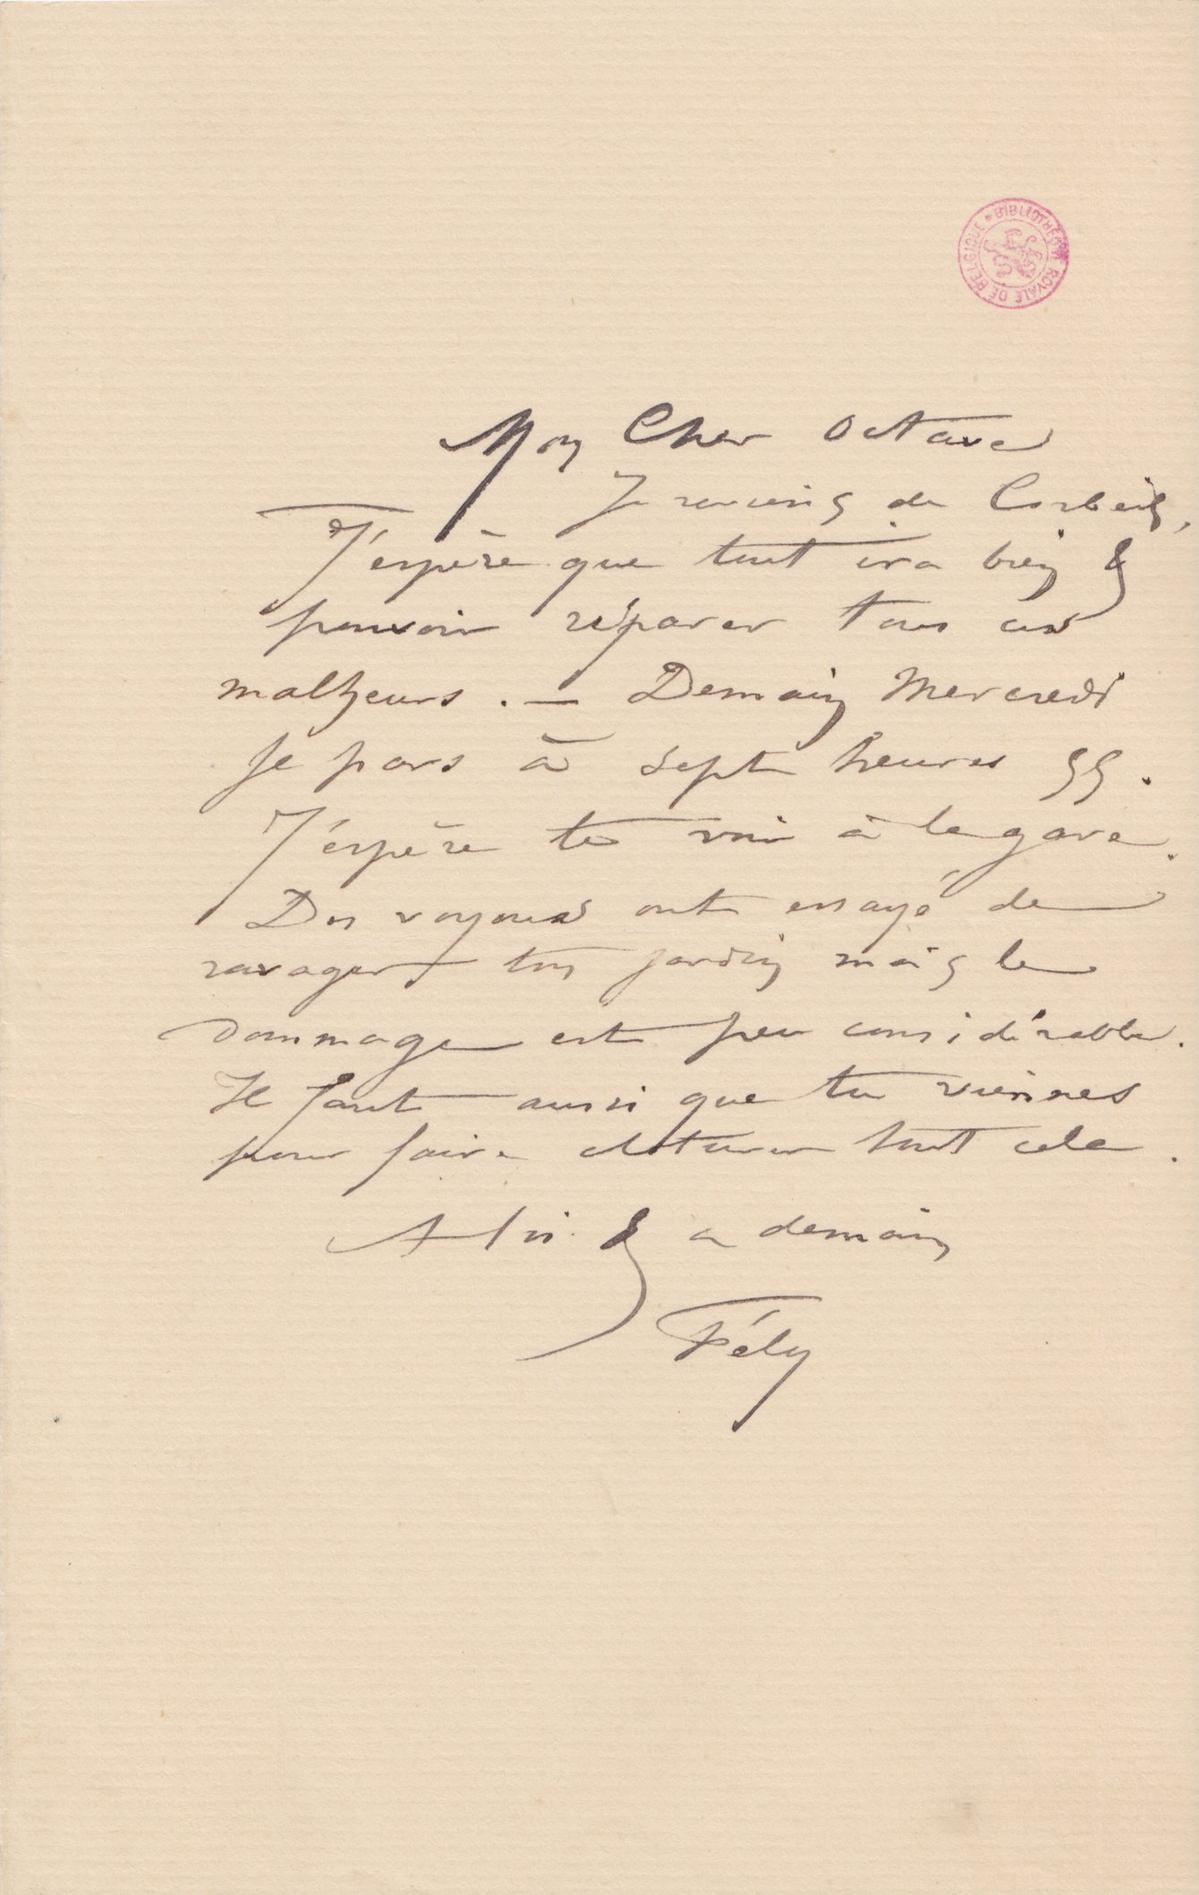 BIBLIOTHÈQUE ROYALE DE BELGIQUE
Mon Cher Octave
Je reviens de Corbeil,
J'espère que tout ira bien &
pouvoir réparer tous ces
malheurs. — Demain Mercredi
Je pars à sept heures 55.
J'espère te voir à la gare.
Des voyous ont essayé de
ravager ton jardin mais le
dommage est peu considérable.
Il faut aussi que tu viennes
pour faire clôturer tout cela.
A toi & a demain
Fély